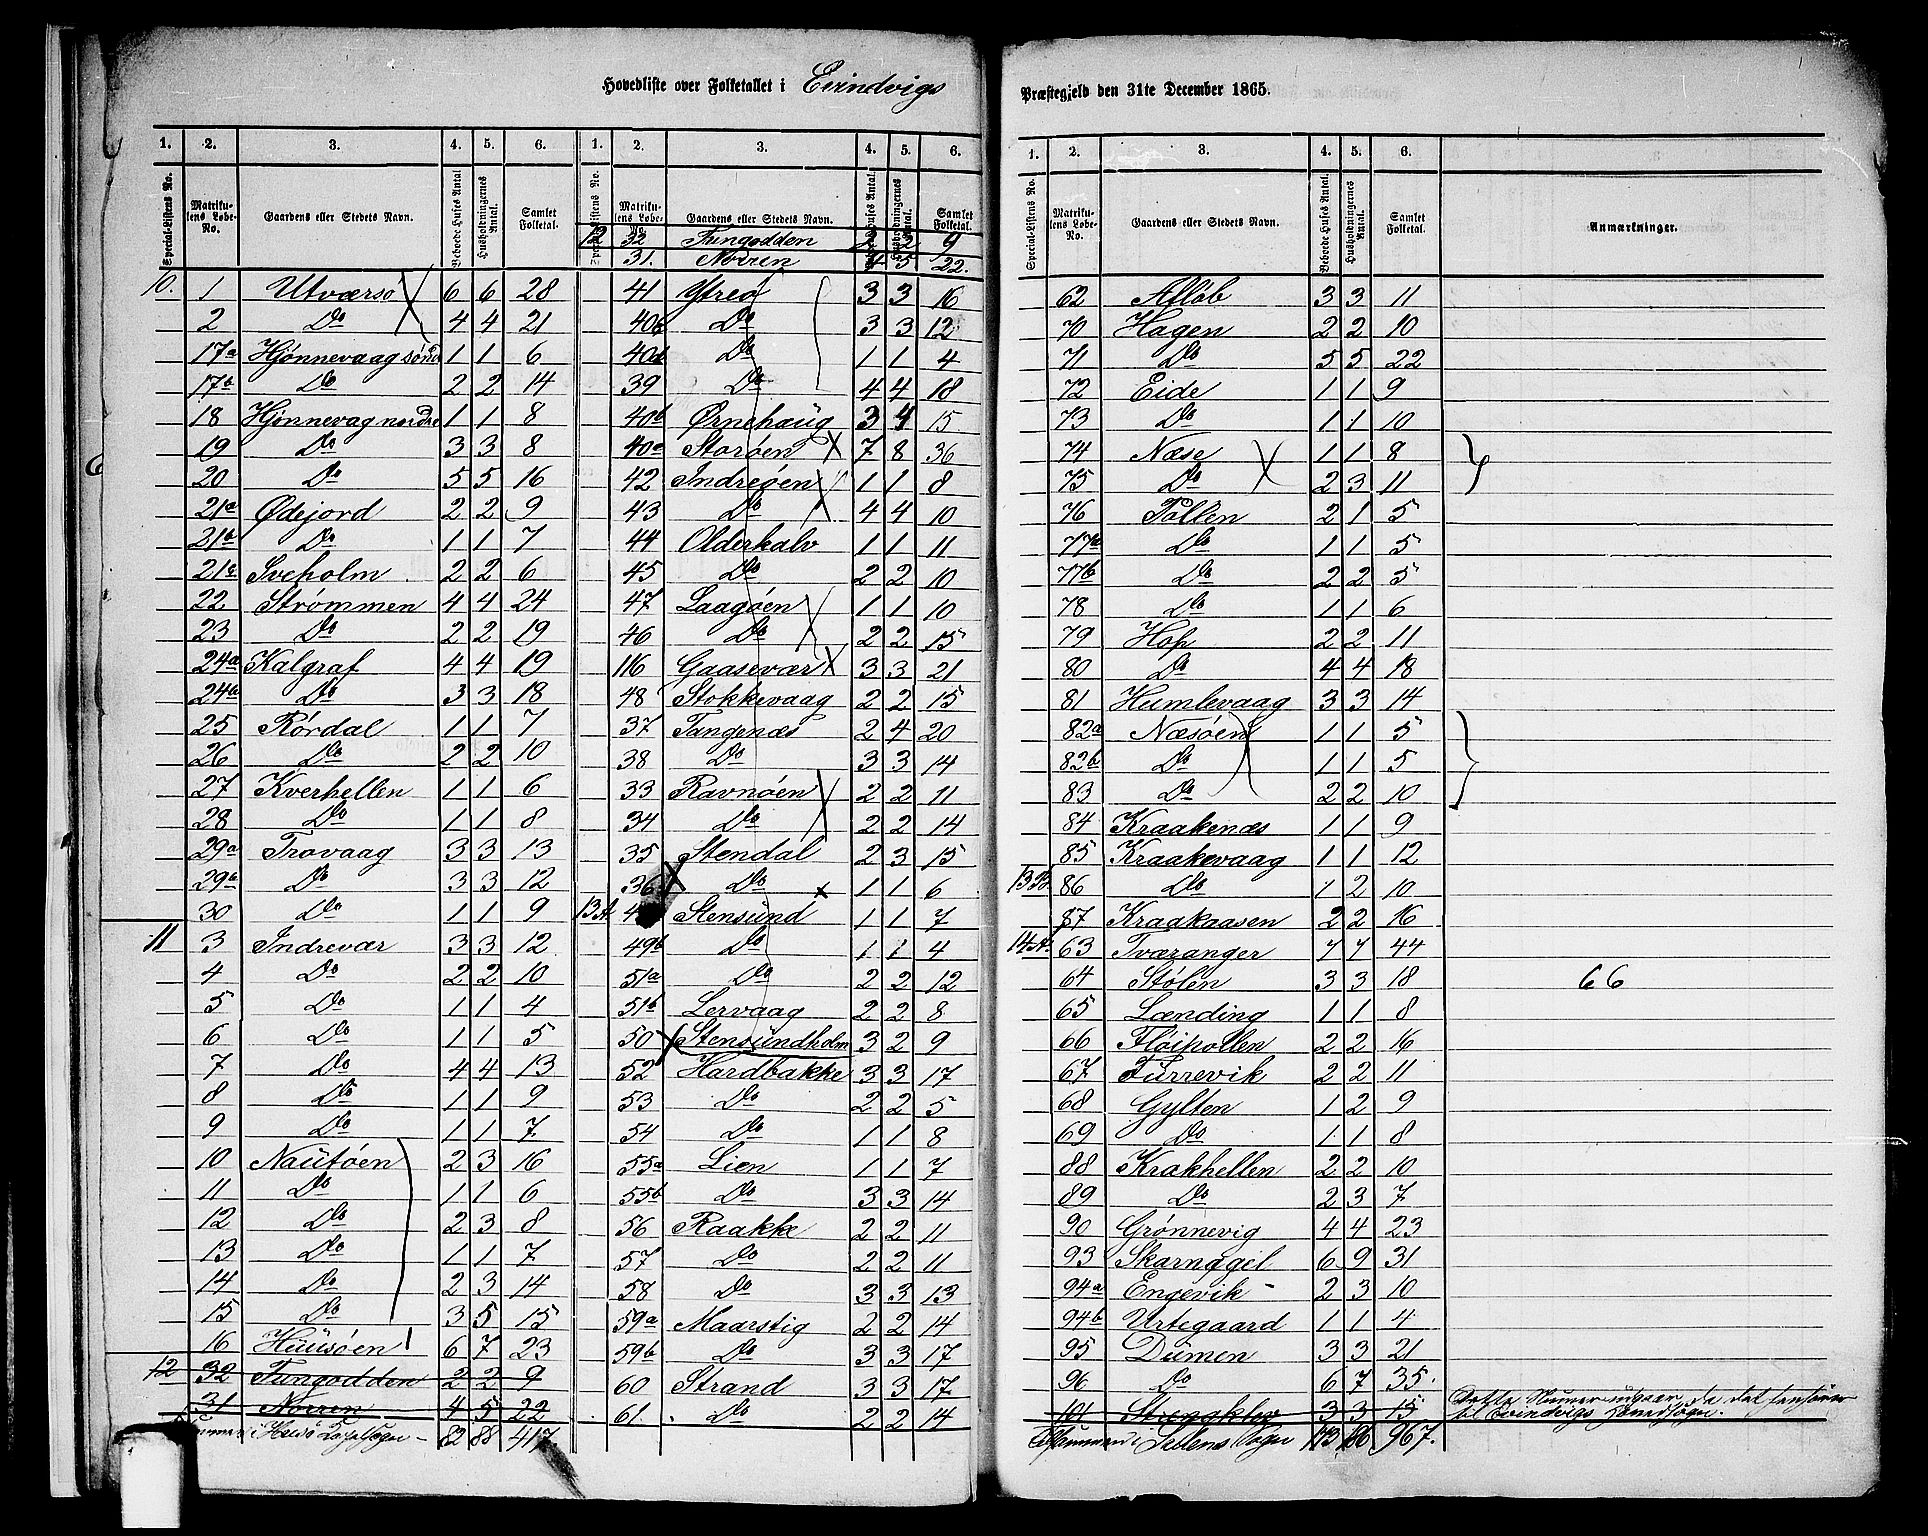 Hovedliste over Folketallet i Evindvigs
Præstegjeld den 31te December 1865.
1. 2. 3. 4. 5. 6.
Special-Listens No. Matrikulens Løbe-No. Gaardens eller Stedets Navn. Beboede Huses Antal Husholdningernes Antal. Samlet Folketal.
10. 1 Utværsø 6 6 28
2 Do 4 4 21
17a Hjønnevaag søndr 1 1 6
17b Do 2 2 14
18 Hjønnevag nordre 1 1 8
19 Do 3 3 8
20 Do 5 5 16
21a Ødejord 2 2 9
21b Do 1 1 7
21c Sveholm 2 2 6
22 Strømmen 4 4 24
23 Do 2 2 19
24a Kalgraf 4 4 19
24b Do 3 3 18
25 Rørdal 1 1 7
26 Do 2 2 10
27 Kverhellen 1 1 6
28 Do 1 1 8
29a Trovaag 3 3 13
29b Do 3 3 12
30 Do 1 1 9
11 3 Indrevær 3 3 12
4 Do 2 2 10
5 Do 1 1 4
6 Do 1 1 5
7 Do 4 4 13
8 Do 1 1 9
9 Do 1 1 7
10 Nautøen 2 3 16
11 Do 1 1 6
12 Do 2 3 8
13 Do 1 1 7
14 Do 2 3 14
15 Do 3 5 15
16 Huusøen 6 7 23
12 32 Tungodden 2 2 9
31 Norren 4 5 22
82 88 417
1. 2. 3. 4. 5. 6.
Special-Listens No. Matrikulens Løbe-No. Gaardens eller Stedets Navn. Beboede Huses Antal. Husholdningernes Antal. Samlet Folketal.
12 32 Tungodden 2 2 9
31. Norren 4 5 22.
41 Ytreø 3 3 16
40c Do 3 3 12
40d Do 1 1 4
39 Do 4 4 18
40b Ørnehaug 3 4 15
40a Storøen 7 8 36
42 Indreøen 1 1 8
43 Do 4 4 10
44 Olderkalv 1 1 11
45 Do 2 2 10
47 Laagøen 1 1 10
46 Do 2 2 15
116 Gaasevær 3 3 21
48 Stokkevaag 2 2 15
37 Tangenæs 2 4 20
38 Do 3 3 14
33 Ravnøen 2 2 11
34 Do 2 2 14
35 Stendal 2 3 15
36 Do 1 1 6
13A. 4 Stensund 1 1 7
49b Do 1 1 4
51a Do 2 2 12
51b Lervaag 2 2 8
50 Stensundholm 3 2 9
52 Hardbakke 3 3 17
53 Do 2 2 5
54 Do 1 1 8
55a Lien 1 1 7
55b Do 3 3 14
56 Raakke 2 2 11
57 Do 2 2 11
58 Do 3 3 13
59a Maarstig 2 2 14
59b Do 3 3 17
60 Strand 3 3 17
61. Do 2 2 14
1. 2. 3. 4. 5. 6.
Special-Listens No. Matrikulens Løbe-No. Gaardens eller Stedets Navn. Beboede Huses Antal. Husholdningernes Antal. Samlet Folketal. Anmærkninger.
62 Afløb 3 3 11
70 Hagen 2 2 10
71 Do 5 5 22
72 Eide 1 1 9
73 Do 1 1 10
74 Næse 1 1 8
75 Do 2 3 11
76 Pollen 2 1 5
77a Do 1 1 5
77b Do 2 2 5
78 Do 1 1 6
79 Hop 2 2 11
80 Do 4 4 18
81 Humlevaag 3 3 14
82a Næsøen 1 1 5
82b Do 1 1 5
83 Do 2 2 10
84 Kraakenæs 1 1 9
85 Kraakevaag 1 1 12
13B. 86 Do 1 2 10
87 Kraakaasen 2 2 16
14A. 63 Tværanger 7 7 44
64 Stølen 3 3 18 66
65 Lænding 1 1 8
66 Fløipollen 2 2 16
67 Furrevik 2 2 11
68 Gylten 1 2 9
69 Do 1 1 8
88 Krakhellen 2 2 10
89 Do 2 3 7
90 Grønnevig 4 4 23
93 Skarnøgil 6 9 31
94a Engevik 2 3 10
94b Urtegaard 1 1 4
95 Dumen 3 3 21
96 Do 6 7 35.
101 Strengklev 3 3 15 Dette Numer udgaar da det henfører
til Evindvigs Hovedsogn.
Tilsammen i Sellens Sogn 173 186 967.